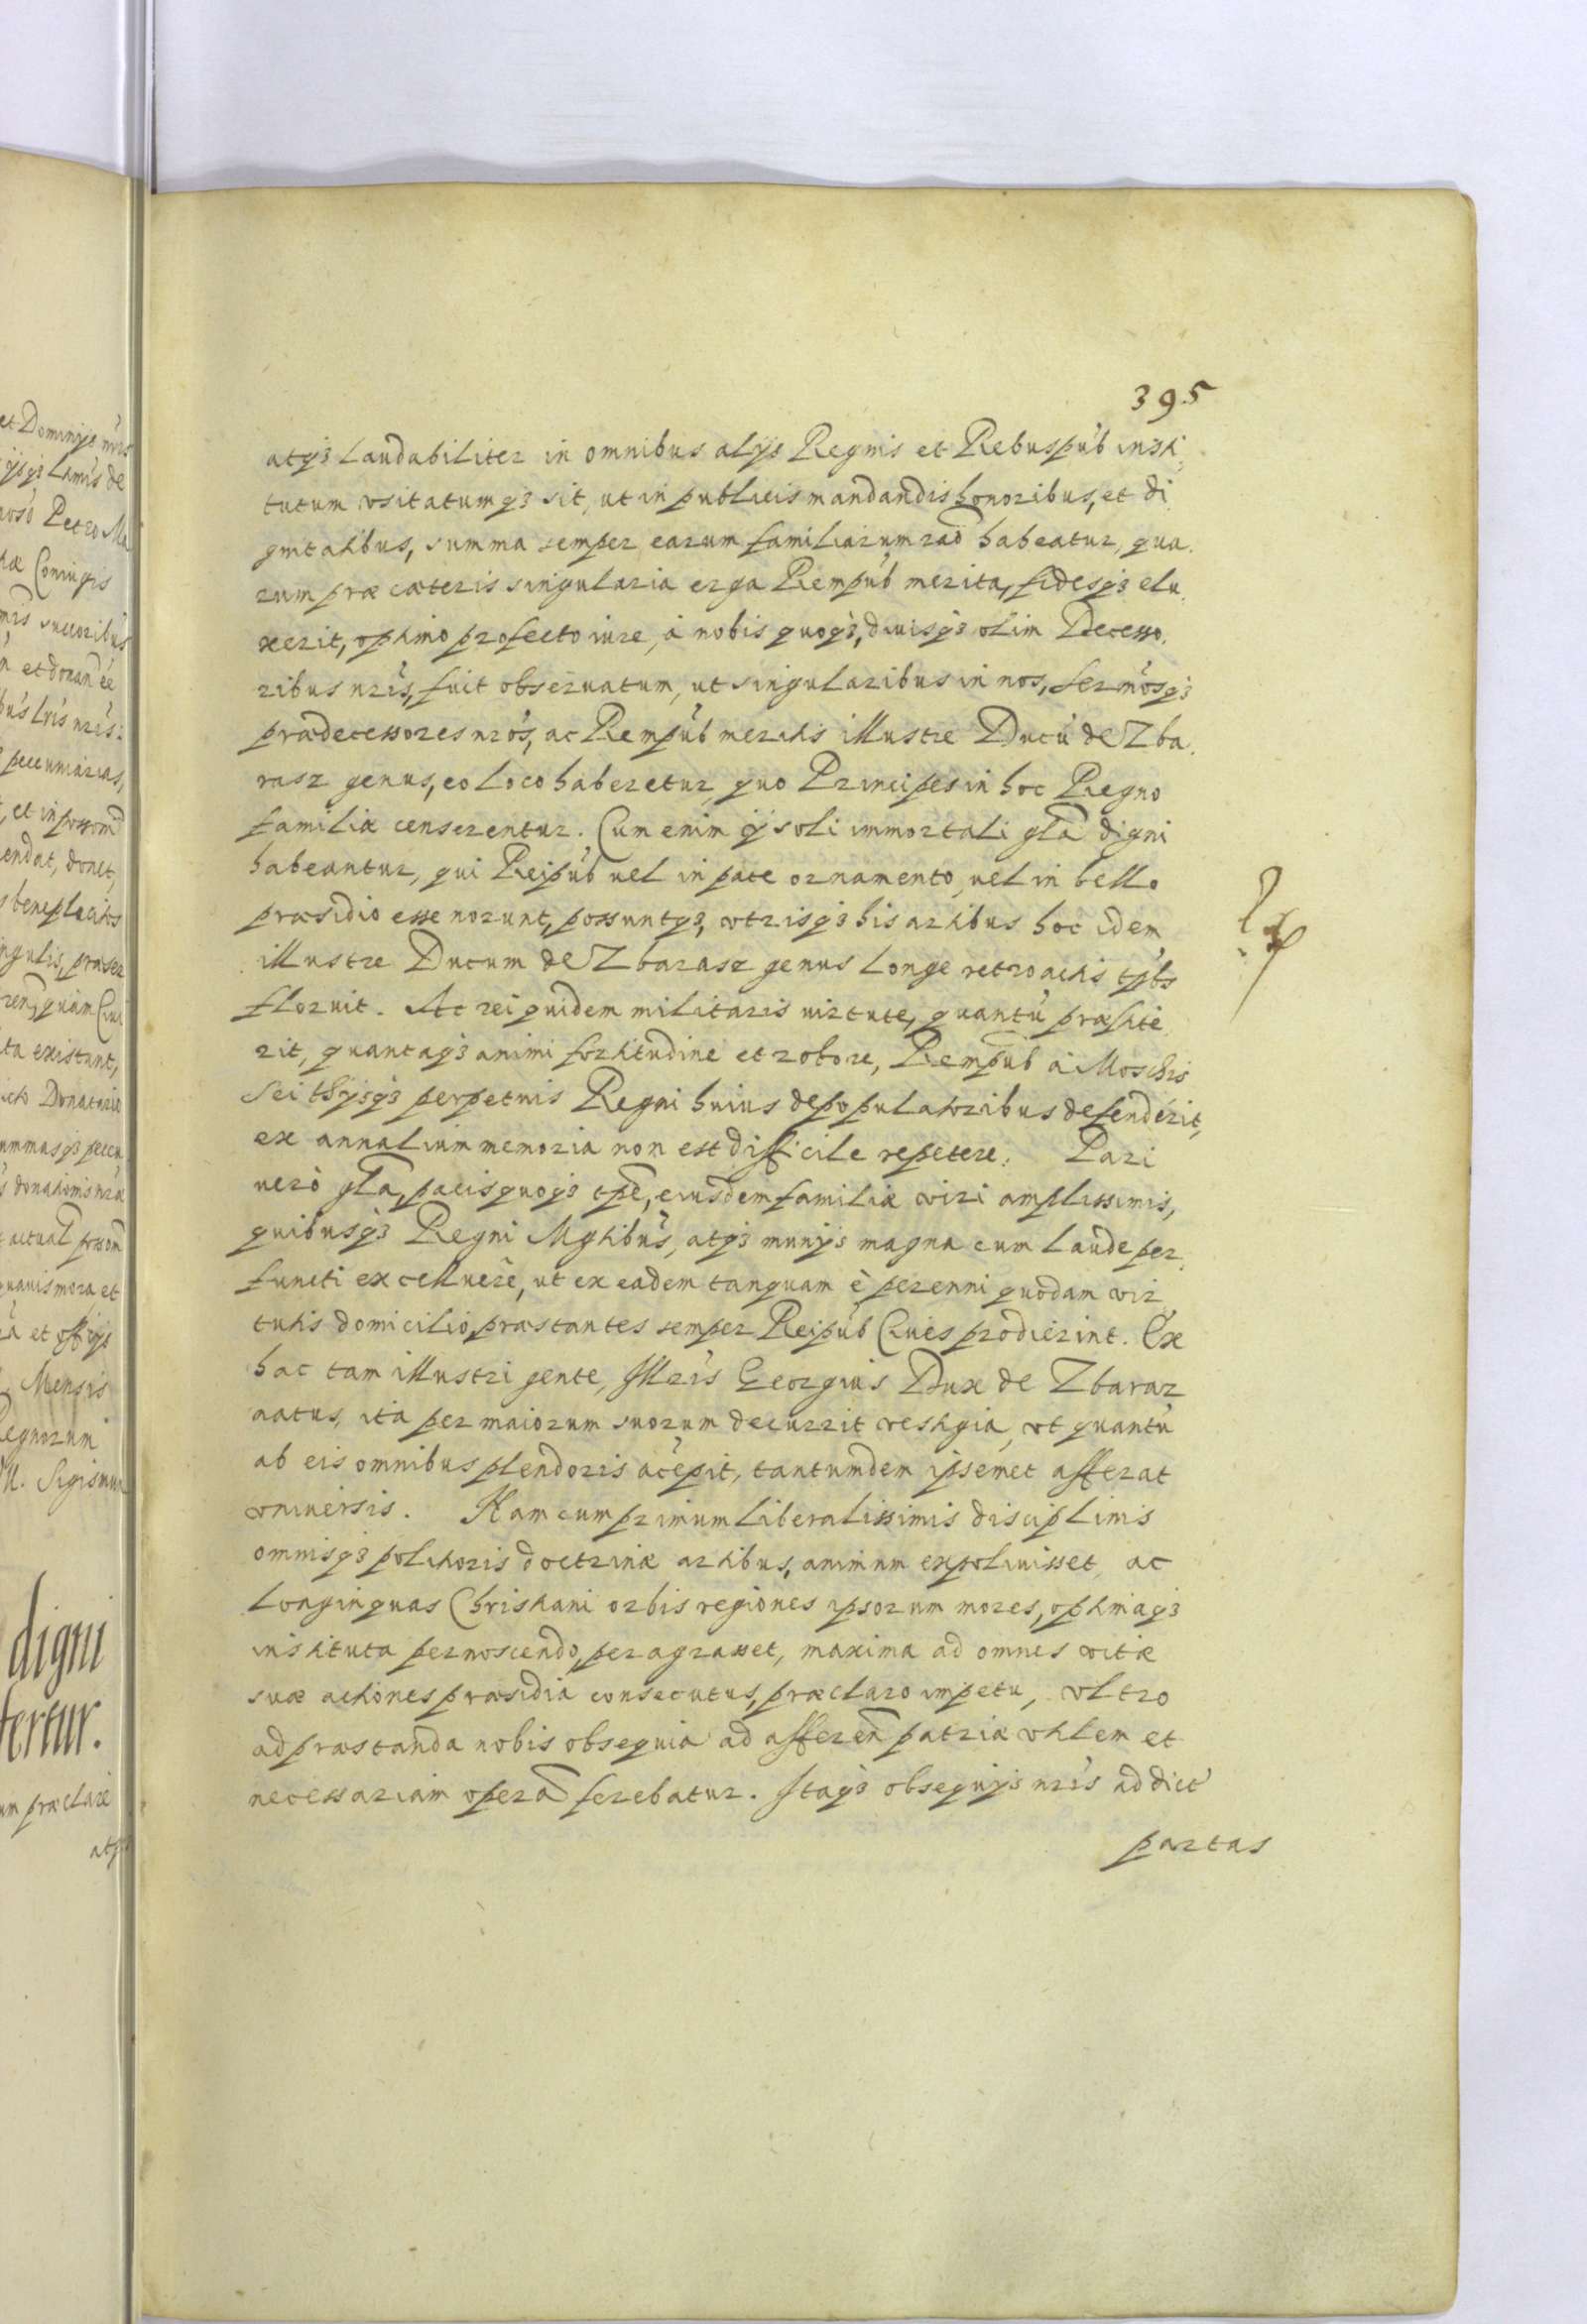 395
atqз laudabiliter in omnibus alijs Regnis et Rebuspub insti,
tutum vsitatumqз sit, ut in publicis mandandis honoribus, et di,
gnitatibus, summa semper earum familiarum raō habeatur, qua,
rum præ cæteris singularia erga Rempub merita, fidesqз elu,
xerit, optimo profecto iure, à nobis quoqз, diuisqз olim Decesso,
ribus nris, fuit obseruatum, ut singularibus in nos, Sermosqз
prædecessores nros, ac Rempub meritis illustre Ducū de Zba,
rasz genus, eo loco haberetur, quo Principes in hoc Regno
familiæ censerentur. Cum enim ij soli immortali gla digni
habeantur, qui Reipub uel in pace ornamento, uel in bello
præsidio esse norunt, possuntqз, vtrisqз his artibus hoc idem
illustre Ducum de Zbarasz genus longe retroactis tpbs
floruit. Ac rei quidem militaris uirtute, quantū præstite,
rit, quantaqз animi fortitudine et robore, Rempub à Moschis
Scithijsqз perpetuis Regni huius depopulatoribus defenderit,
ex annalium memoria non est difficile repetere. Pari
uerò gla, pacis quoqз tpe, eiusdem familiæ viri amplissimis,
quibusqз Regni Mgtibus, atqз munijs magna cum laude per,
functi excelluere, ut ex eadem tanquam è perenni quodam vir,
tutis domicilio, præstantes semper Reipub Ciues prodierint. Ex
hac tam illustri gente, Illris Georgius Dux de Zbaraz
natus, ita per maiorum suorum decurrit vestigia, vt quantū
ab eis omnibus plendoris accepit, tantumdem ipsemet afferat
vniuersis. Nam cum primum liberalissimis disciplinis
omnisqз politioris doctrinæ artibus, animum expoliuisset, ac
longinquas Christiani orbis regiones ipsorum mores, optimaqз
instituta pernoscendo, peragrasset, maxima ad omnes vitæ
suæ actiones præsidia consecutus, præclaro impetu, vltro
ad præstanda nobis obsequia ad afferen patriæ vtilem et
necessariam operā ferebatur. Itaqз obsequijs nris addict
partas